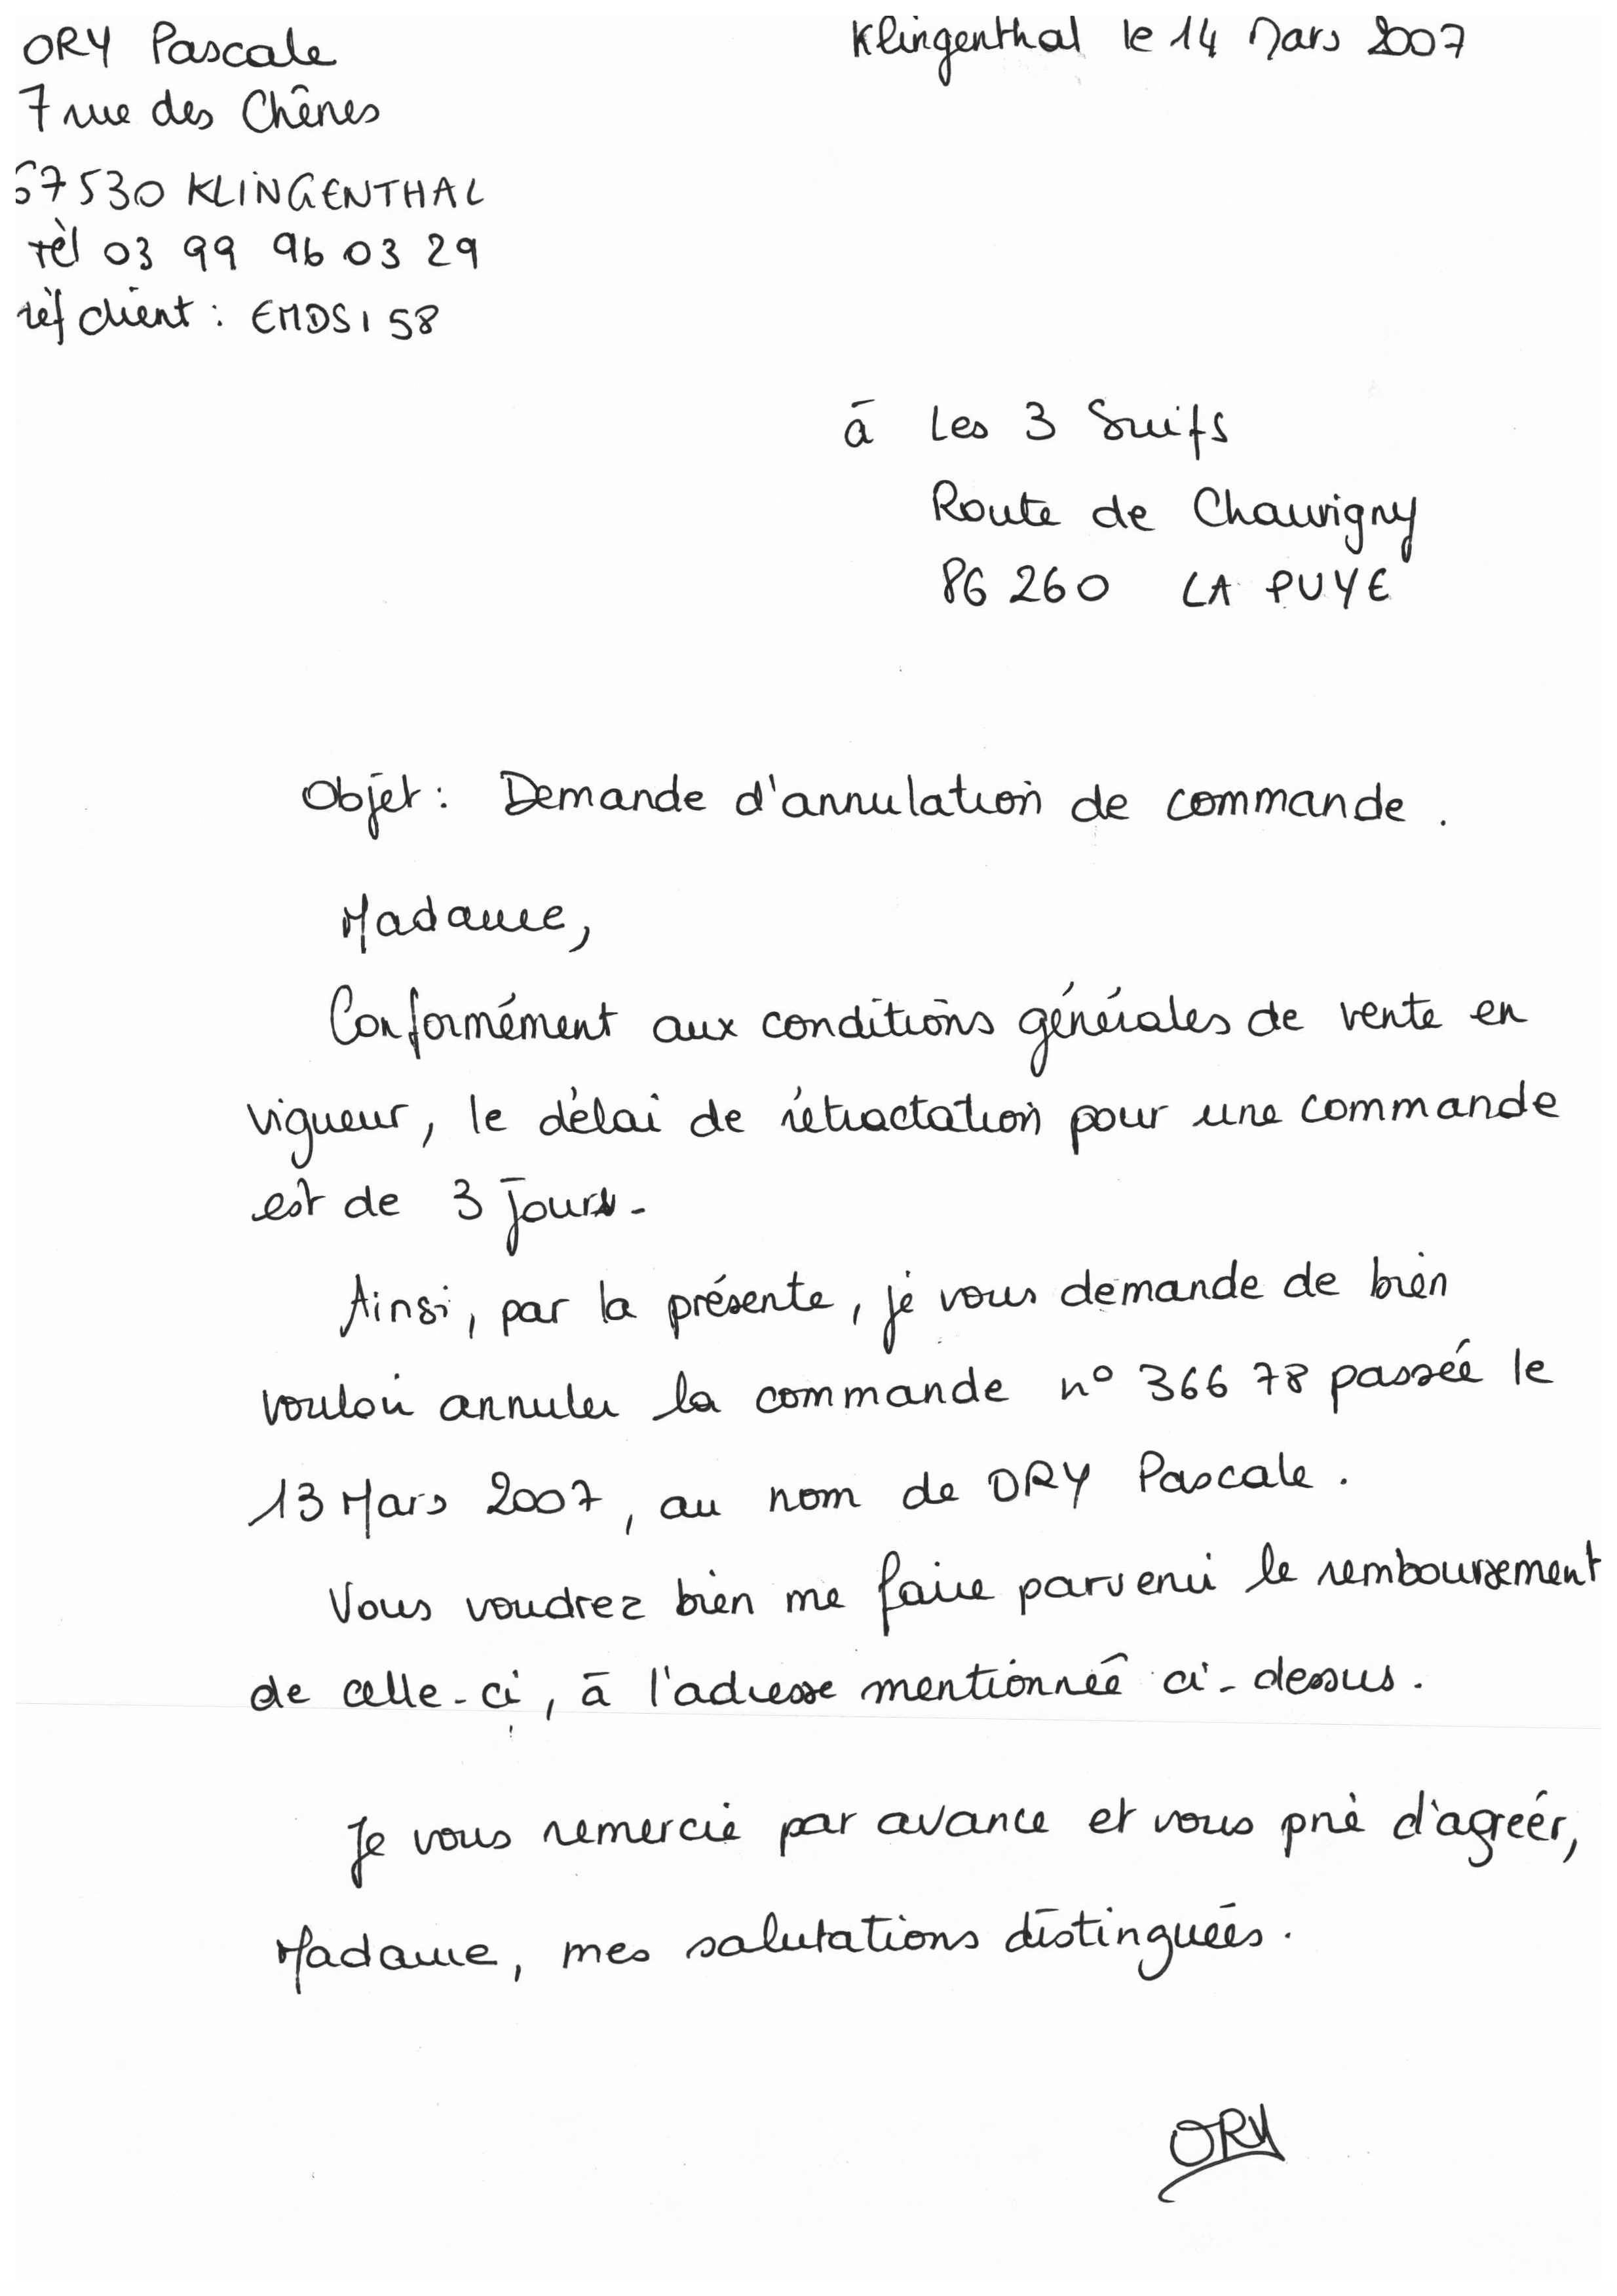 ORY Pascale
Klingenthal le 14 Mars 2007
7 rue des Chênes
67530 KLINGENTHAL
tèl 03 99 96 03 29
rèf client : EMDS158
à Les 3 Suifs
Route de Chauvigny
86 260 LA PUYE
Objet : Demande d'annulation de commande .
Madame,
Conformément aux conditions générales de vente en
vigueur, le délai de rétractation pour une commande
est de 3 jours.
Ainsi, par la présente, je vous demande de bien
vouloir annuler la commande n° 366 78 passée le
13 Mars 2007, au nom de ORY Pascale.
Vous voudrez bien me faire parvenir le remboursement
de celle-ci, à l'adresse mentionnée ci-dessus.
Je vous remercie par avance et vous prie d'agréér,
Madame, mes salutations distinguées.
ORY